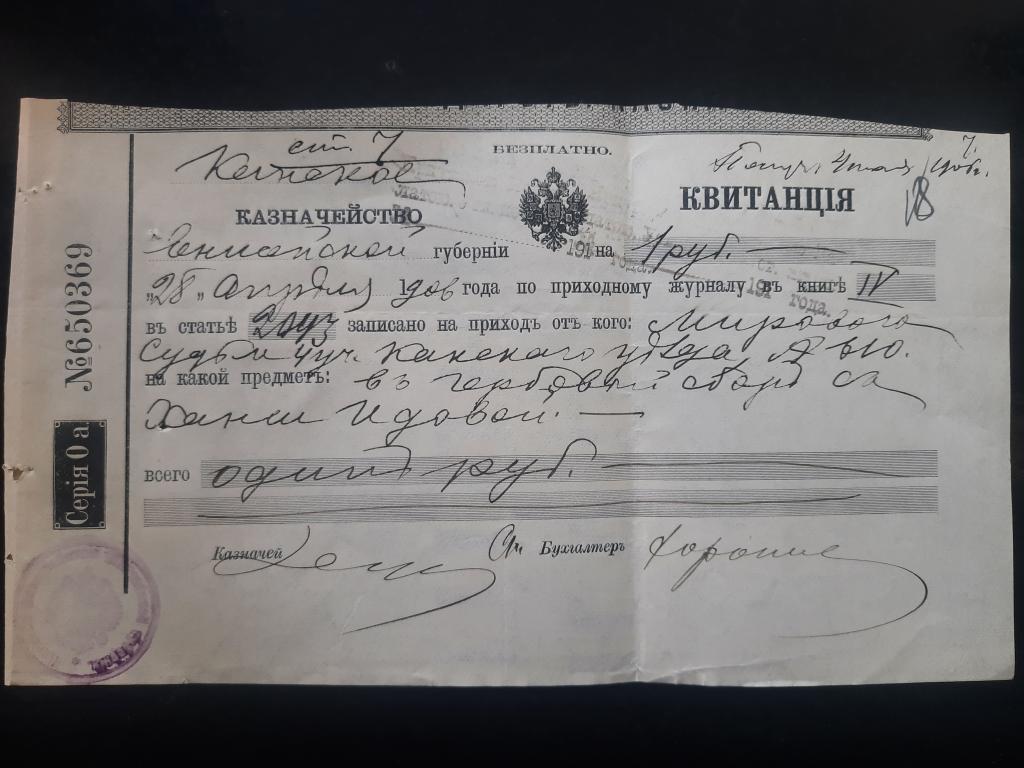 ст. 7
БЕЗПЛАТНО.
Получ. 4 мая 1906г.
7.
Канское
КАЗНАЧЕЙСТВО
КВИТАНЦІЯ
18
Енисейской губерніи на 1 руб.
191 года.
191 года.
„28„ Апрѣля 1906 года по приходному журналу въ книгѣ IV
въ статьѣ 2093 записано на приходъ отъ кого: Мирового
Судьи уч. Канскаго уѣзда
на какой предметъ: въ гербовый сборъ съ
Ханы Идовой. —
всего одинъ руб.
Казначей
Ст. Бухгалтеръ
№650369
Серія 0 а.